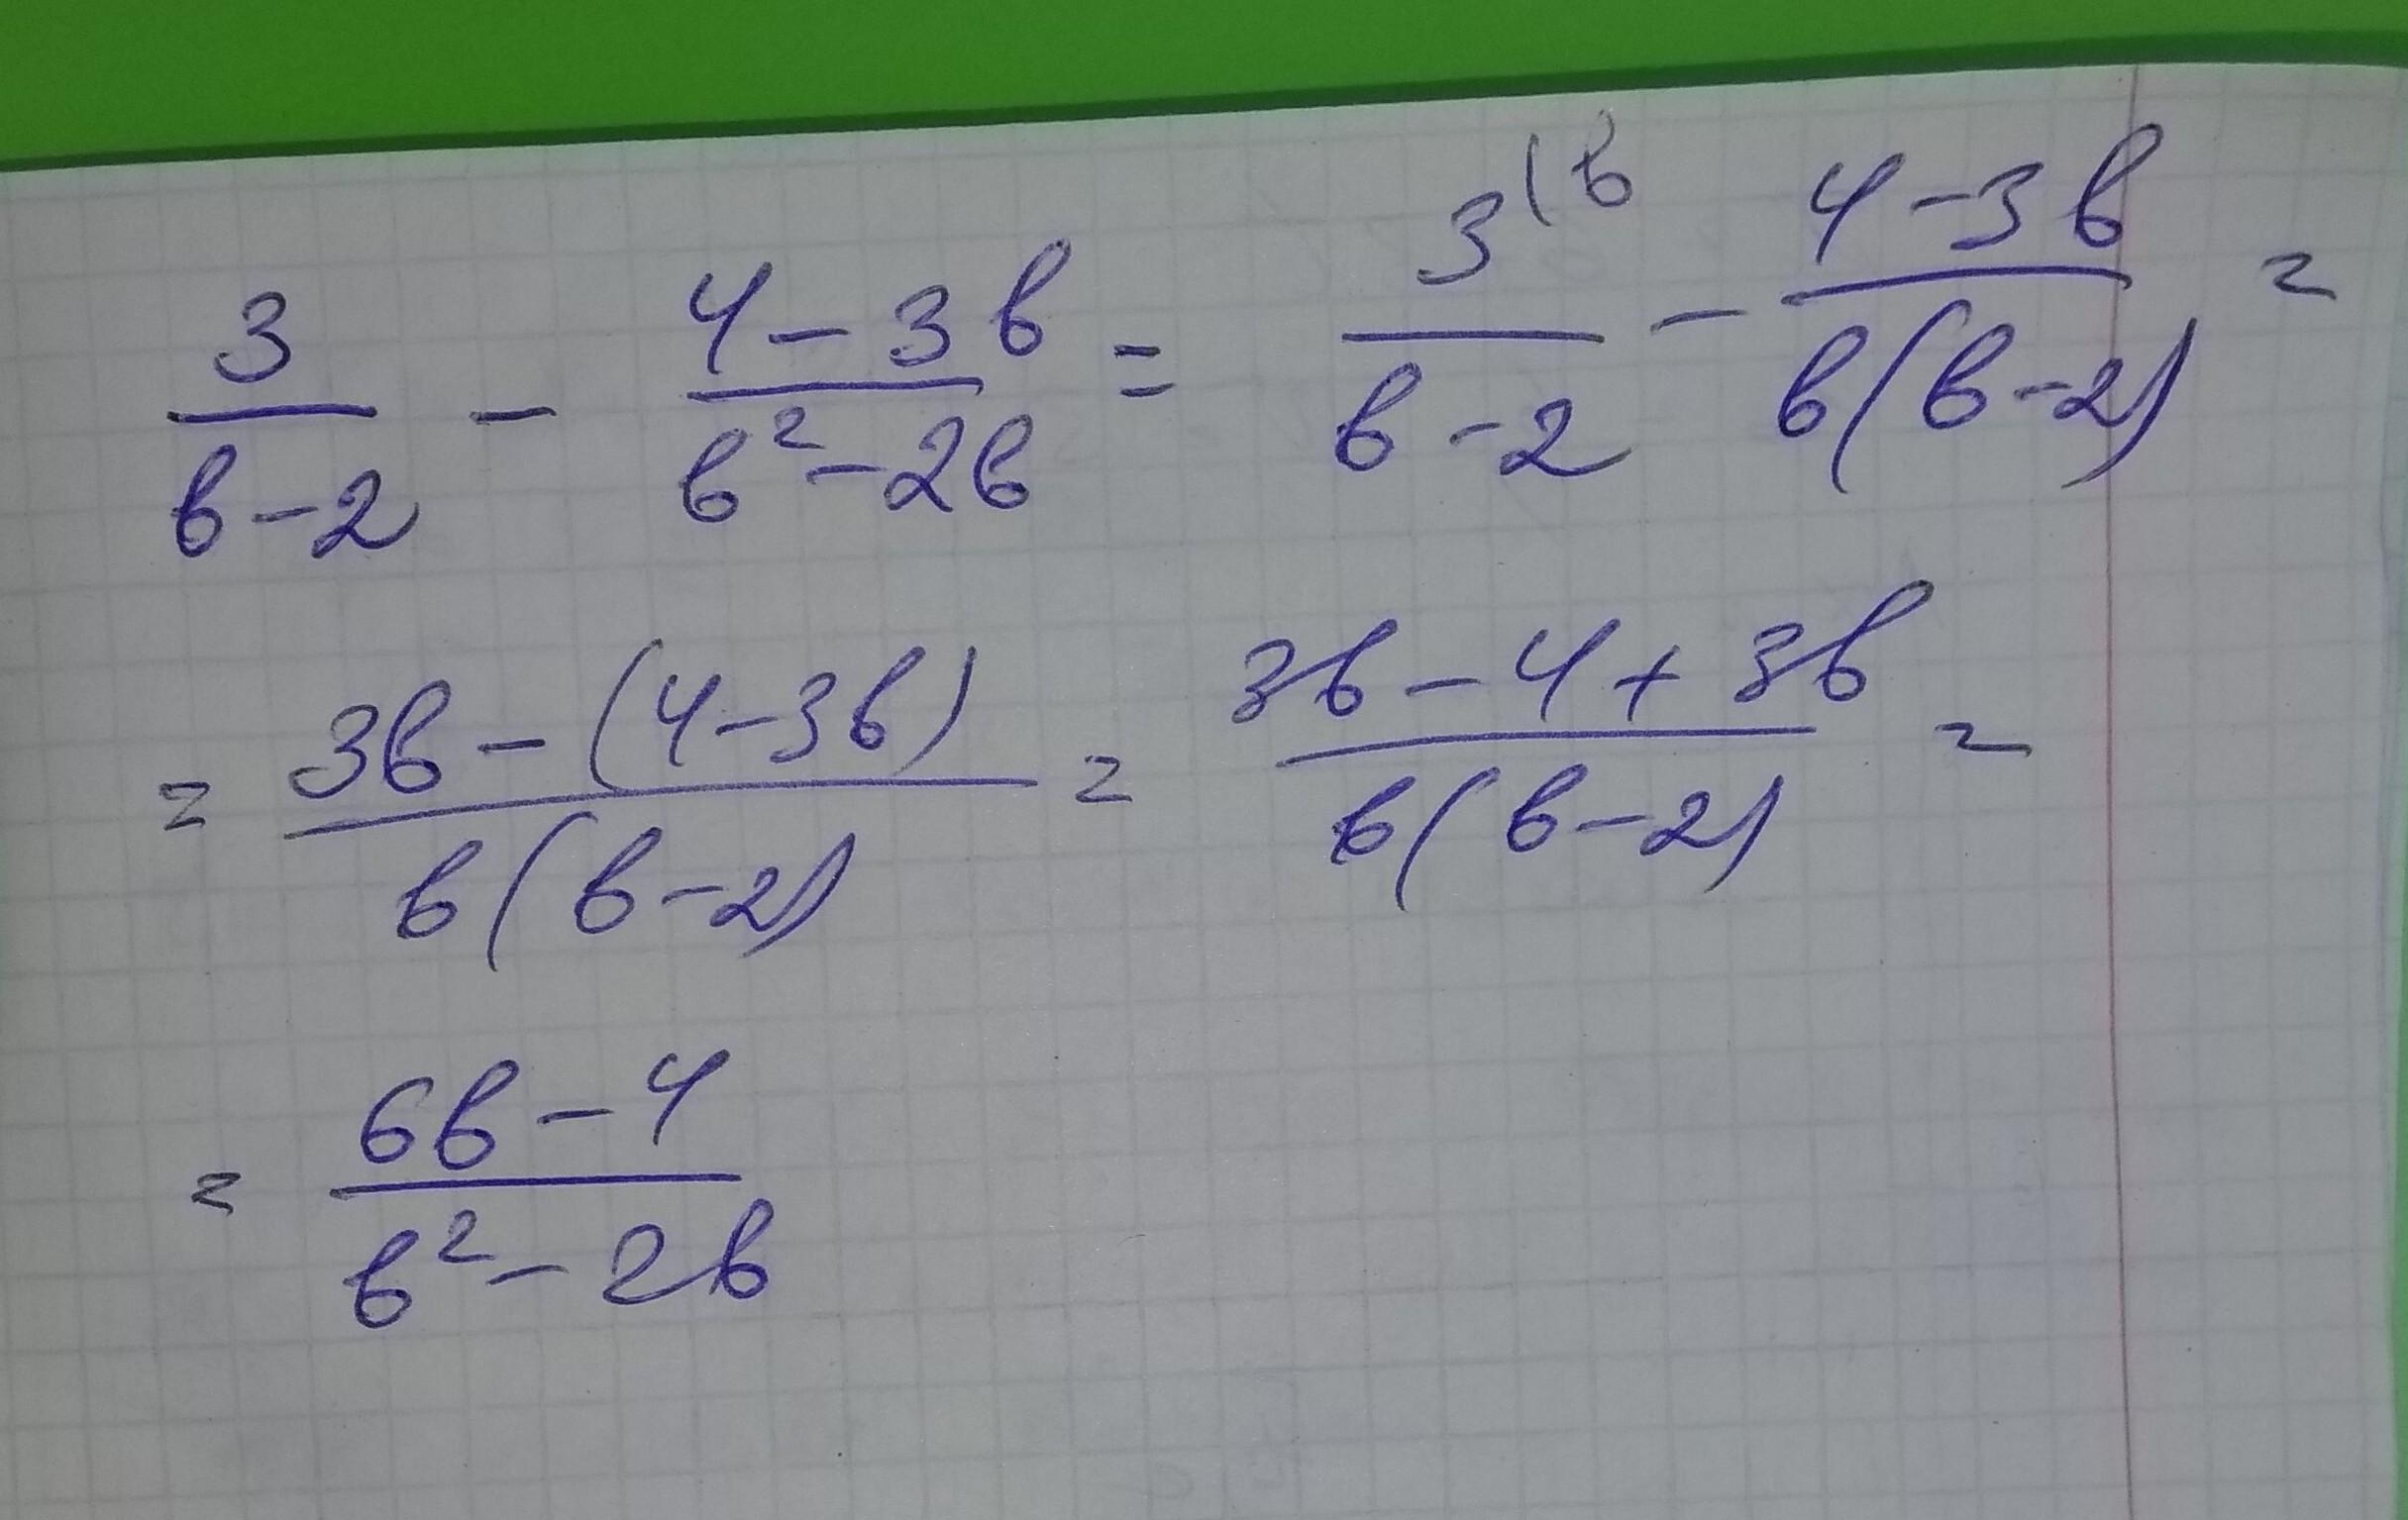 3/(b-2) - (4-3b)/(b²-2b) = 3^(b/(b-2) - (4-3b)/(b(b-2)) =
= (3b-(4-3b))/(b(b-2)) = (3b-4+3b)/(b(b-2)) =
= (6b-4)/(b²-2b)